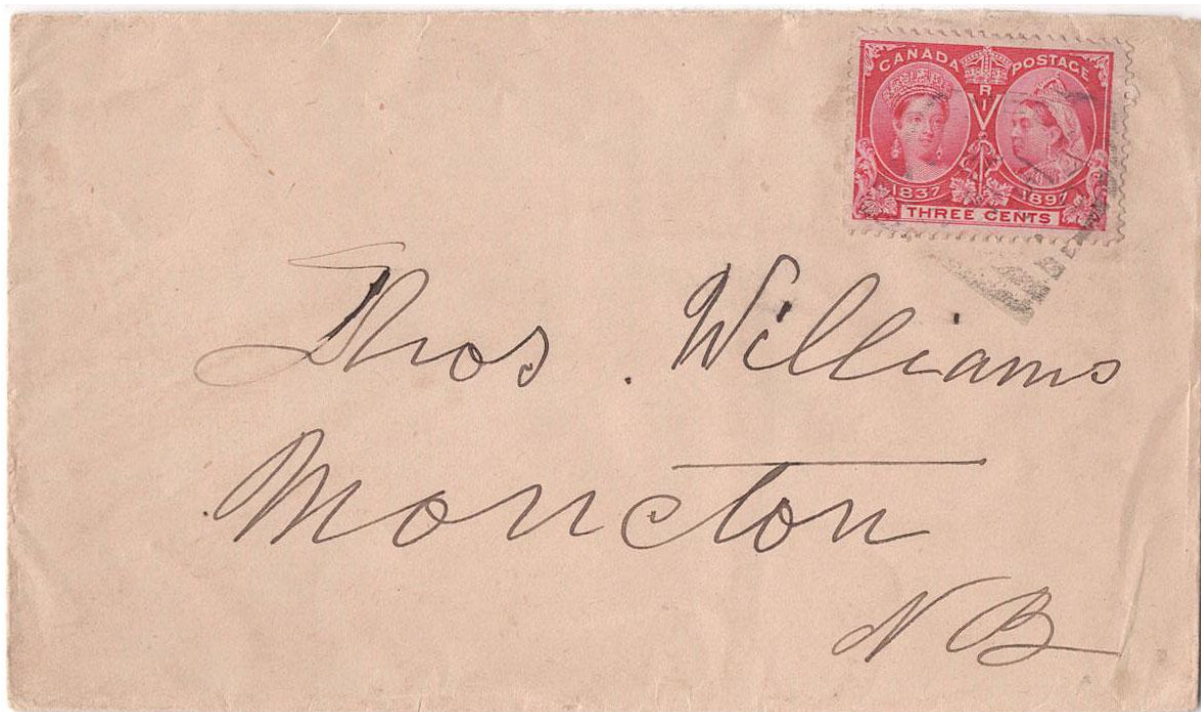 CANADA POSTAGE
V R I
1837 1897
THREE CENTS
Thos. Williams
Moncton
N B